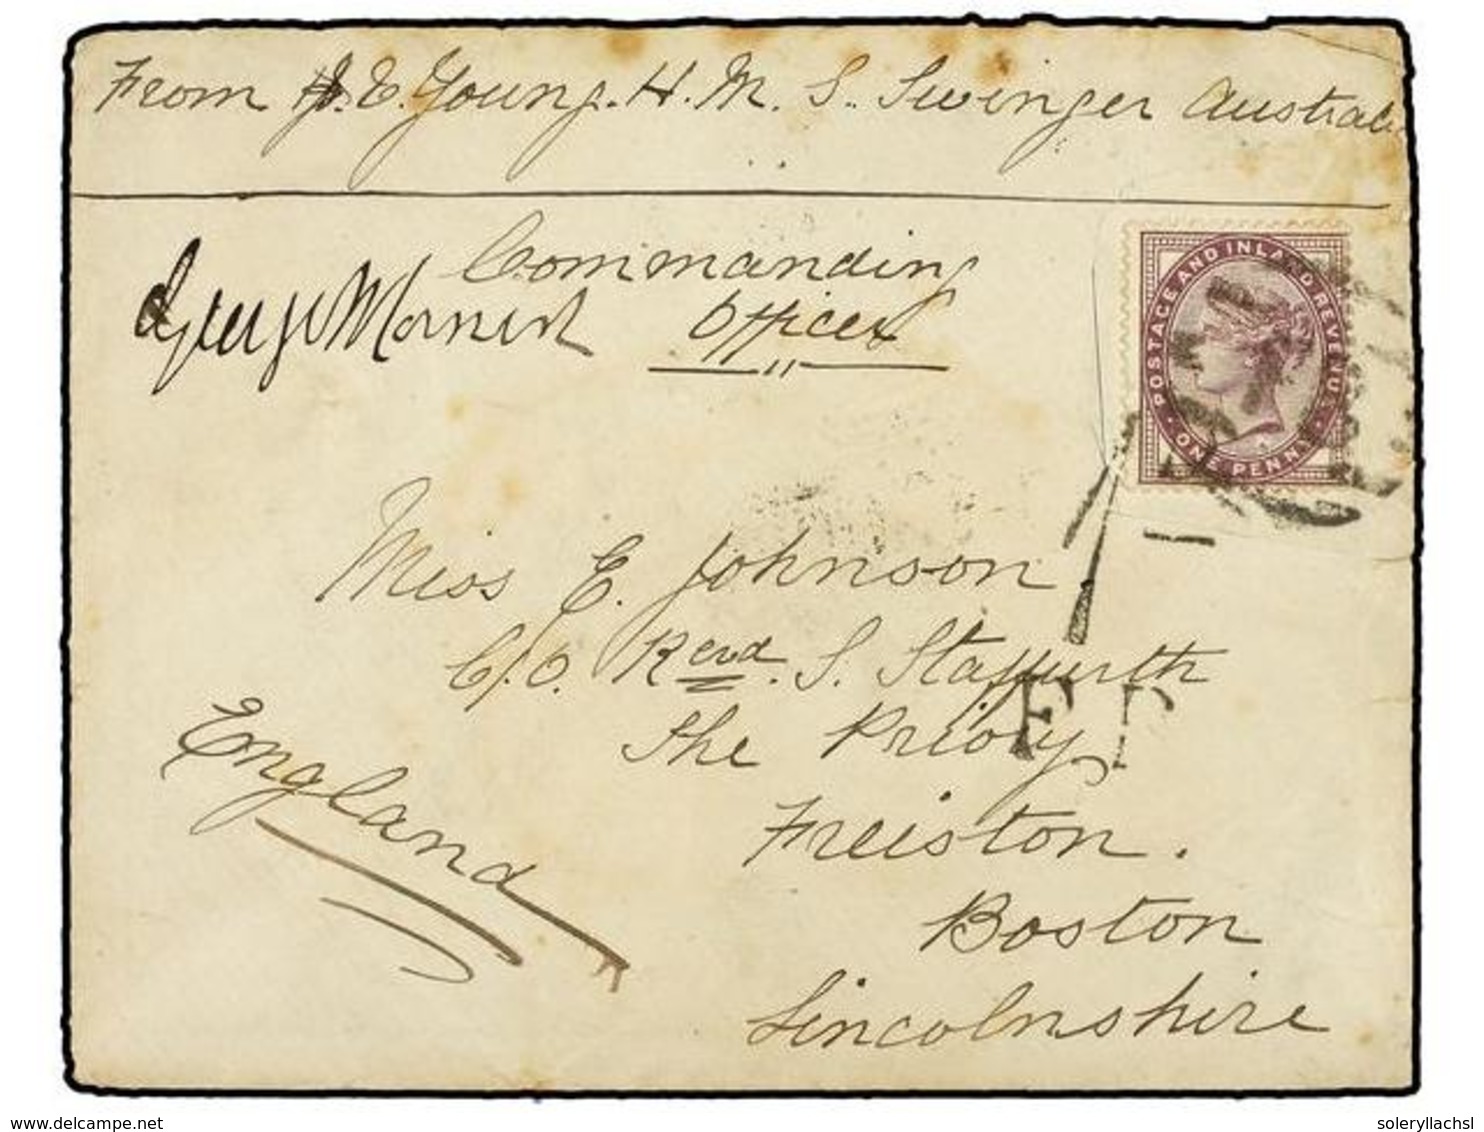 From J. E. Young. H. M. S. Swinger Austral
Commanding
Officer
POSTAGE AND INLAND REVENUE
ONE PENNY
Miss E. Johnson
C/O. Revd. S. Staffurth
The Priory
Freiston.
Boston
Lincolnshire
England
soleryllachsl